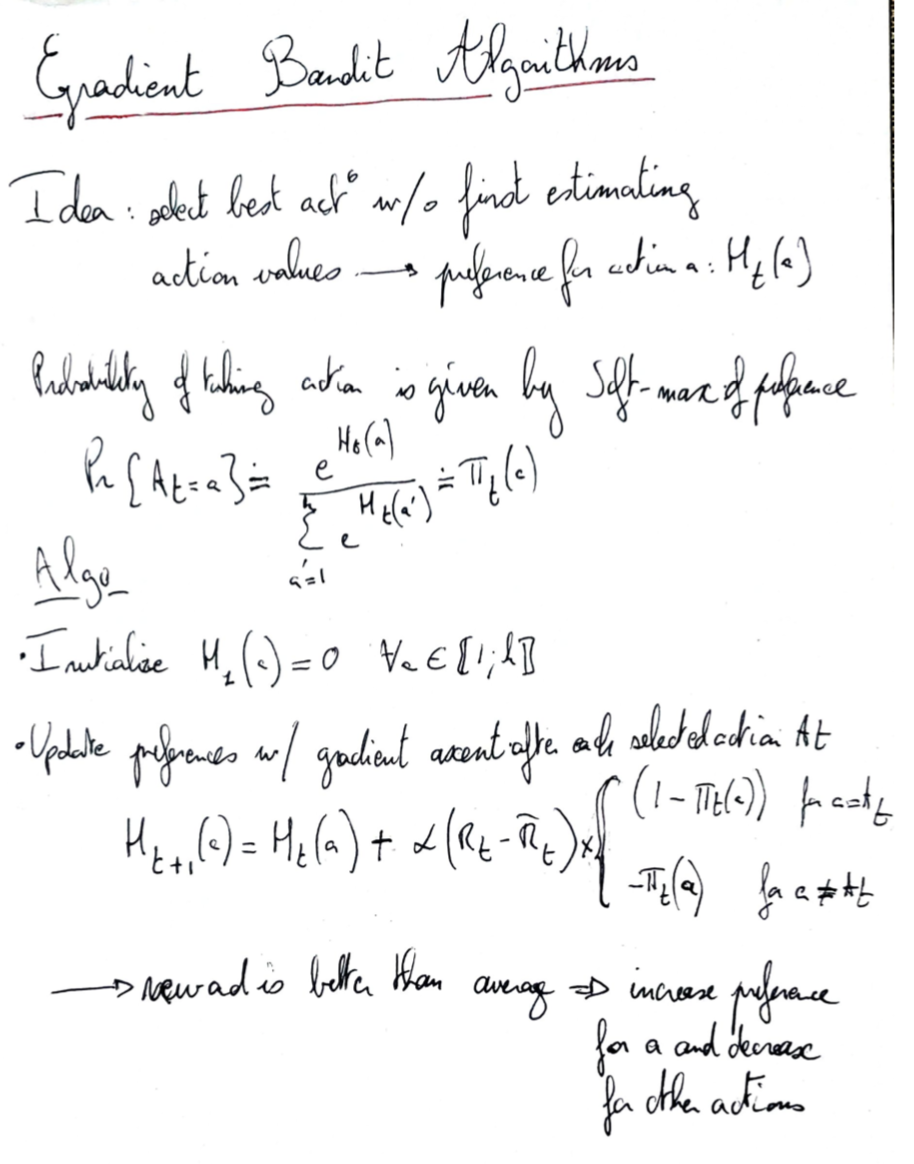 Gradient Bandit Algorithms
Idea : select best act° w/o first estimating
action values → preference for action a : H_t(a)
Probability of taking action is given by Soft-max of preference
Pr{A_t = a} ≐ e^{H_t(a)} / ∑_{a'=1}^{k} e^{H_t(a')} ≐ π_t(a)
Algo
• Initialize H_1(a) = 0 ∀a ∈ ⟦1; k⟧
• Update preferences w/ gradient ascent after each selected action A_t
H_{t+1}(a) = H_t(a) + α(R_t - R̄_t) × { (1 - π_t(a)) for a = A_t
-π_t(a) for a ≠ A_t
→ reward is better than average ⇒ increase preference
for a and decrease
for other actions